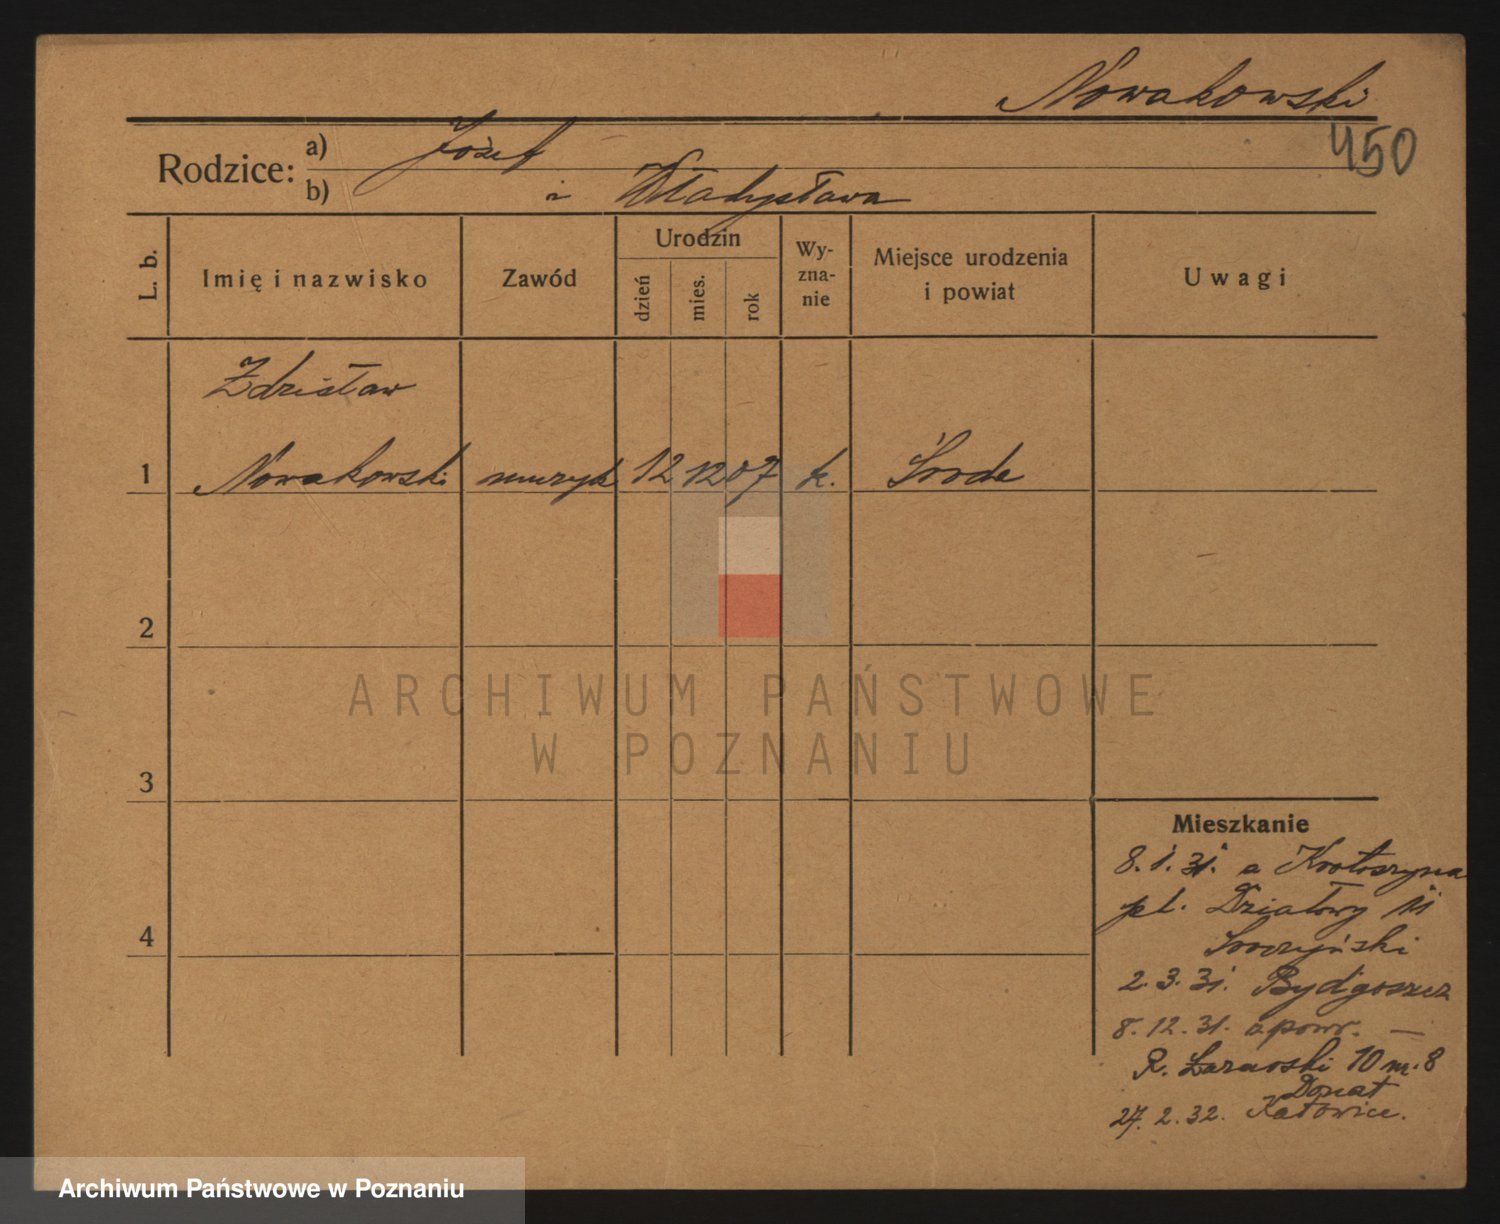 Nowakowski
450
Rodzice: a) Józef
b) i Władysława
L. b. Imię i nazwisko Zawód Urodzin dzień mies. rok Wy-zna-nie Miejsce urodzenia i powiat Uwagi
Zdzisław
1 Nowakowski muzyk 12 12 07 k. Środa
2
ARCHIWUM PAŃSTWOWE
W POZNANIU
3
Mieszkanie
8. 1. 31. z Krotoszyna
pl. Działowy 11
4
2. 3. 31. Bydgoszcz
8. 12. 31. z powr. —
R. 10 m. 8
Donat
27. 2. 32. Katowice.
Archiwum Państwowe w Poznaniu